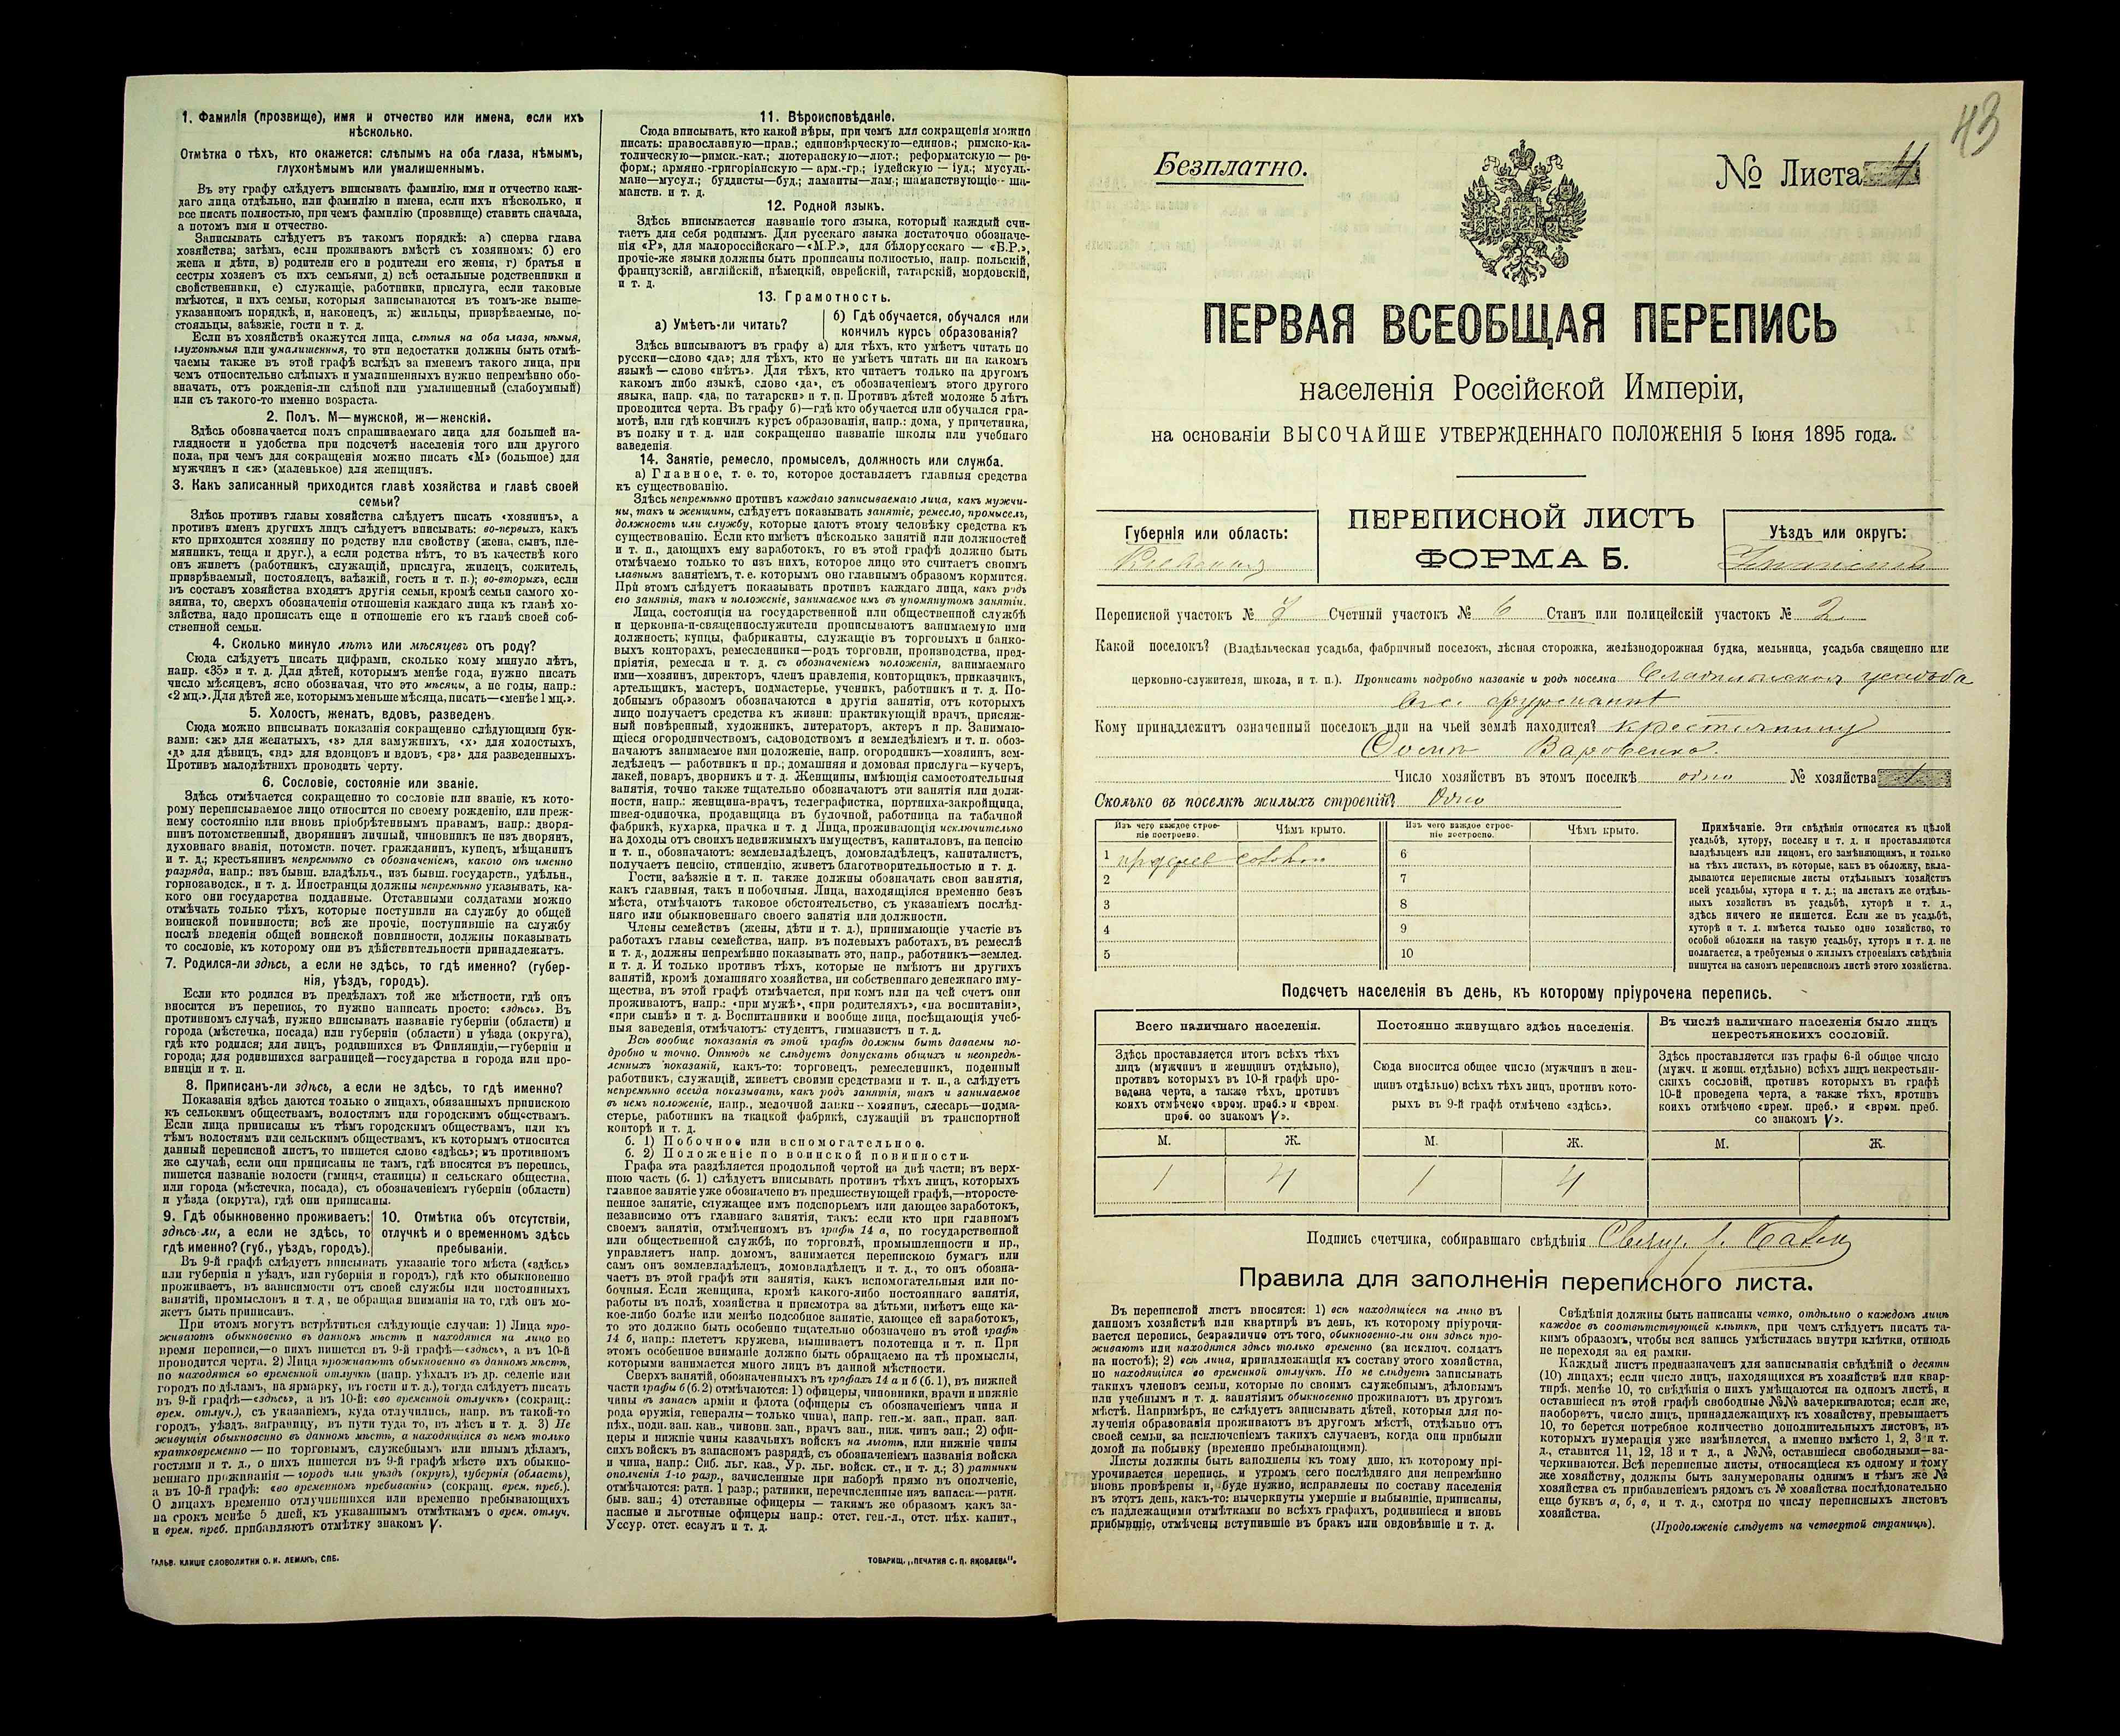 1. Фамилія (прозвище), имя и отчество или имена, если ихъ
нѣсколько.
Отмѣтка о тѣхъ, кто окажется: слѣпымъ на оба глаза, нѣмымъ,
глухонѣмымъ или умалишеннымъ.
Въ эту графу слѣдуетъ вписывать фамилію, имя и отчество каж-
даго лица отдѣльно, или фамилію и имена, если ихъ нѣсколько, и
все писать полностью, при чемъ фамилію (прозвище) ставить сначала,
а потомъ имя и отчество.
Записывать слѣдуетъ въ такомъ порядкѣ: а) сперва глава
хозяйства; затѣмъ, если проживаютъ вмѣстѣ съ хозяиномъ: б) его
жена и дѣти, в) родители его и родители жены, г) братья и
сестры хозяевъ съ ихъ семьями, д) всѣ остальные родственники и
свойственники, е) служащіе, работники, прислуга, если таковые
имѣются, и ихъ семьи, которыя записываются въ томъ-же выше-
указанномъ порядкѣ, и, наконецъ, ж) жильцы, призрѣваемые, по-
стояльцы, заѣзжіе, гости и т. д.
Если въ хозяйствѣ окажутся лица, слѣпыя на оба глаза, нѣмыя,
глухонѣмыя или умалишенныя, то эти недостатки должны быть отмѣ-
чаемы также въ этой графѣ вслѣдъ за именемъ такого лица, при
чемъ относительно слѣпыхъ и умалишенныхъ нужно непремѣнно обо-
значать, отъ рожденія-ли слѣпой или умалишенный (слабоумный)
или съ такого-то именно возраста.
2. Полъ. М—мужской, ж—женскій.
Здѣсь обозначается полъ спрашиваемаго лица для большей на-
глядности и удобства при подсчетѣ населенія того или другого
пола, при чемъ для сокращенія можно писать «М» (большое) для
мужчинъ и «ж» (маленькое) для женщинъ.
3. Какъ записанный приходится главѣ хозяйства и главѣ своей
семьи?
Здѣсь противъ главы хозяйства слѣдуетъ писать «хозяинъ», а
противъ именъ другихъ лицъ слѣдуетъ вписывать: во-первыхъ, какъ
кто приходится хозяину по родству или свойству (жена, сынъ, пле-
мянникъ, теща и друг.), а если родства нѣтъ, то въ качествѣ кого
онъ живетъ (работникъ, служащій, прислуга, жилецъ, сожитель,
призрѣваемый, постоялецъ, заѣзжій, гость и т. п.); во-вторыхъ, если
въ составъ хозяйства входятъ другія семьи, кромѣ семьи самого хо-
зяина, то, сверхъ обозначенія отношенія каждаго лица къ главѣ хо-
зяйства, надо прописать еще и отношеніе его къ главѣ своей соб-
ственной семьи.
4. Сколько минуло лѣтъ или мѣсяцевъ отъ роду?
Сюда слѣдуетъ писать цифрами, сколько кому минуло лѣтъ,
напр. «35» и т. д. Для дѣтей, которымъ менѣе года, нужно писать
число мѣсяцевъ, ясно обозначая, что это мѣсяцы, а не годы, напр.:
«2 мц.». Для дѣтей же, которымъ меньше мѣсяца, писать—«менѣе 1 мц.».
5. Холостъ, женатъ, вдовъ, разведенъ.
Сюда можно вписывать показанія сокращенно слѣдующими бук-
вами: «ж» для женатыхъ, «з» для замужнихъ, «х» для холостыхъ,
«д» для дѣвицъ, «вд» для вдовцовъ и вдовъ, «рв» для разведенныхъ.
Противъ малолѣтнихъ проводить черту.
6. Сословіе, состояніе или званіе.
Здѣсь отмѣчается сокращенно то сословіе или званіе, къ кото-
рому переписываемое лицо относится по своему рожденію, или преж-
нему состоянію или вновь пріобрѣтеннымъ правамъ, напр.: дворя-
нинъ потомственный, дворянинъ личный, чиновникъ не изъ дворянъ,
духовнаго званія, потомств. почет. гражданинъ, купецъ, мѣщанинъ
и т. д.; крестьянинъ непремѣнно съ обозначеніемъ, какого онъ именно
разряда, напр.: изъ бывш. владѣльч., изъ бывш. государств., удѣльн.,
горнозаводск., и т. д. Иностранцы должны непремѣнно указывать, ка-
кого они государства подданные. Отставными солдатами можно
отмѣчать только тѣхъ, которые поступили на службу до общей
воинской повинности; всѣ же прочіе, поступившіе на службу
послѣ введенія общей воинской повинности, должны показывать
то сословіе, къ которому они въ дѣйствительности принадлежатъ.
7. Родился-ли здѣсь, а если не здѣсь, то гдѣ именно? (губер-
нія, уѣздъ, городъ).
Если кто родился въ предѣлахъ той же мѣстности, гдѣ онъ
вносится въ перепись, то нужно написать просто: «здѣсь». Въ
противномъ случаѣ, нужно вписывать названіе губерніи (области) и
города (мѣстечка, посада) или губерніи (области) и уѣзда (округа),
гдѣ кто родился; для лицъ, родившихся въ Финляндіи,—губерніи и
города; для родившихся заграницей—государства и города или про-
винціи и т. п.
8. Приписанъ-ли здѣсь, а если не здѣсь, то гдѣ именно?
Показанія здѣсь даются только о лицахъ, обязанныхъ припискою
къ сельскимъ обществамъ, волостямъ или городскимъ обществамъ.
Если лица приписаны къ тѣмъ городскимъ обществамъ, или къ
тѣмъ волостямъ или сельскимъ обществамъ, къ которымъ относится
данный переписной листъ, то пишется слово «здѣсь»; въ противномъ
же случаѣ, если они приписаны не тамъ, гдѣ вносятся въ перепись,
пишется названіе волости (гмины, станицы) и сельскаго общества,
или города (мѣстечка, посада), съ обозначеніемъ губерніи (области)
и уѣзда (округа), гдѣ они приписаны.
9. Гдѣ обыкновенно проживаетъ: здѣсь-ли, а если не здѣсь, то гдѣ именно? (губ., уѣздъ, городъ).
10. Отмѣтка объ отсутствіи, отлучкѣ и о временномъ здѣсь пребываніи.
Въ 9-й графѣ слѣдуетъ вписывать указаніе того мѣста («здѣсь»
или губернія и уѣздъ, или губернія и городъ), гдѣ кто обыкновенно
проживаетъ, въ зависимости отъ своей службы или постоянныхъ
занятій, промысловъ и т. д, не обращая вниманія на то, гдѣ онъ мо-
жетъ быть приписанъ.
При этомъ могутъ встрѣтиться слѣдующіе случаи: 1) Лица про-
живаютъ обыкновенно въ данномъ мѣстѣ и находятся на лицо во
время переписи,—о нихъ пишется въ 9-й графѣ—«здѣсь», а въ 10-й
проводится черта. 2) Лица проживаютъ обыкновенно въ данномъ мѣстѣ,
но находятся во временной отлучкѣ (напр. уѣхалъ въ др. селеніе или
городъ по дѣламъ, на ярмарку, въ гости и т. д.), тогда слѣдуетъ писать
въ 9-й графѣ—«здѣсь», а въ 10-й: «во временной отлучкѣ» (сокращ.:
врем. отлуч.), съ указаніемъ, куда отлучились, напр. въ такой-то
городъ, уѣздъ, заграницу, въ пути туда то, въ лѣсъ и т. д. 3) Не
живущія обыкновенно въ данномъ мѣстѣ, а находящіяся въ немъ только
кратковременно — по торговымъ, служебнымъ или инымъ дѣламъ,
гостями и т. д., о нихъ пишется въ 9-й графѣ мѣсто ихъ обыкно-
веннаго проживанія — городъ или уѣздъ (округъ), губернія (область),
а въ 10-й графѣ: «во временномъ пребываніи» (сокращ. врем. преб.).
О лицахъ временно отлучившихся или временно пребывающихъ
на срокъ менѣе 5 дней, къ указаннымъ отмѣткамъ о врем. отлуч.
и врем. преб. прибавляютъ отмѣтку знакомъ V.
ГАЛЬВ. КЛИШЕ СЛОВОЛИТНИ О. И. ЛЕМАНЪ, СПБ.
11. Вѣроисповѣданіе.
Сюда вписывать, кто какой вѣры, при чемъ для сокращенія можно
писать: православную—прав.; единовѣрческую—единов.; римско-ка-
толическую—римск.-кат.; лютеранскую—лют.; реформатскую — ре-
форм.; армяно-григоріанскую — арм.-гр.; іудейскую — іуд.; мусуль-
мане—мусул.; буддисты—буд.; ламаиты—лам.; шаманствующіе— ша-
манств. и т. д.
12. Родной языкъ.
Здѣсь вписывается названіе того языка, который каждый счи-
таетъ для себя роднымъ. Для русскаго языка достаточно обозначе-
нія «Р», для малороссійскаго—«М.Р.», для бѣлорусскаго — «Б.Р.»,
прочіе-же языки должны быть прописаны полностью, напр. польскій,
французскій, англійскій, нѣмецкій, еврейскій, татарскій, мордовскій,
и т. д.
13. Грамотность.
а) Умѣетъ-ли читать?
б) Гдѣ обучается, обучался или кончилъ курсъ образованія?
Здѣсь вписываютъ въ графу а) для тѣхъ, кто умѣетъ читать по
русски—слово «да»; для тѣхъ, кто не умѣетъ читать ни на какомъ
языкѣ — слово «нѣтъ». Для тѣхъ, кто читаетъ только на другомъ
какомъ либо языкѣ, слово «да», съ обозначеніемъ этого другого
языка, напр. «да, по татарски» и т. п. Противъ дѣтей моложе 5 лѣтъ
проводится черта. Въ графу б)—гдѣ кто обучается или обучался гра-
мотѣ, или гдѣ кончилъ курсъ образованія, напр.: дома, у причетника,
въ полку и т. д. или сокращенно названіе школы или учебнаго
заведенія.
14. Занятіе, ремесло, промыселъ, должность или служба.
а) Главное, т. е. то, которое доставляетъ главныя средства
къ существованію.
Здѣсь непремѣнно противъ каждаго записываемаго лица, какъ мужчи-
ны, такъ и женщины, слѣдуетъ показывать занятіе, ремесло, промыселъ,
должность или службу, которые даютъ этому человѣку средства къ
существованію. Если кто имѣетъ нѣсколько занятій или должностей
и т. п., дающихъ ему заработокъ, то въ этой графѣ должно быть
отмѣчаемо только то изъ нихъ, которое лицо это считаетъ своимъ
главнымъ занятіемъ, т. е. которымъ оно главнымъ образомъ кормится.
При этомъ слѣдуетъ показывать противъ каждаго лица, какъ родъ
его занятія, такъ и положеніе, занимаемое имъ въ упомянутомъ занятіи.
Лица, состоящія на государственной или общественной службѣ
и церковно-и-священнослужители прописываютъ занимаемую ими
должность; купцы, фабриканты, служащіе въ торговыхъ и банко-
выхъ конторахъ, ремесленники—родъ торговли, производства, пред-
пріятія, ремесла и т. д. съ обозначеніемъ положенія, занимаемаго
ими—хозяинъ, директоръ, членъ правленія, конторщикъ, приказчикъ,
артельщикъ, мастеръ, подмастерье, ученикъ, работникъ и т. д. По-
добнымъ образомъ обозначаются и другія занятія, отъ которыхъ
лицо получаетъ средства къ жизни: практикующій врачъ, присяж-
ный повѣренный, художникъ, литераторъ, актеръ и пр. Занимаю-
щіеся огородничествомъ, садоводствомъ и земледѣліемъ и т. п. обоз-
начаютъ занимаемое ими положеніе, напр. огородникъ—хозяинъ, зем-
ледѣлецъ — работникъ и пр.; домашняя и домовая прислуга—кучеръ,
лакей, поваръ, дворникъ и т. д. Женщины, имѣющія самостоятельныя
занятія, точно также тщательно обозначаютъ эти занятія или долж-
ности, напр.: женщина-врачъ, телеграфистка, портниха-закройщица,
швея-одиночка, продавщица въ булочной, работница на табачной
фабрикѣ, кухарка, прачка и т. д Лица, проживающія исключительно
на доходы отъ своихъ недвижимыхъ имуществъ, капиталовъ, на пенсію
и т. п., обозначаютъ: землевладѣлецъ, домовладѣлецъ, капиталистъ,
получаетъ пенсію, стипендію, живетъ благотворительностью и т. д.
Гости, заѣзжіе и т. п. также должны обозначать свои занятія,
какъ главныя, такъ и побочныя. Лица, находящіяся временно безъ
мѣста, отмѣчаютъ таковое обстоятельство, съ указаніемъ послѣд-
няго или обыкновеннаго своего занятія или должности.
Члены семействъ (жены, дѣти и т. д.), принимающіе участіе въ
работахъ главы семейства, напр. въ полевыхъ работахъ, въ ремеслѣ
и т. д., должны непремѣнно показывать это, напр., работникъ—землед.
и т. д. И только противъ тѣхъ, которые не имѣютъ ни другихъ
занятій, кромѣ домашняго хозяйства, ни собственнаго денежнаго иму-
щества, въ этой графѣ отмѣчается, при комъ или на чей счетъ они
проживаютъ, напр.: «при мужѣ», «при родителяхъ», «на воспитаніи»,
«при сынѣ» и т. д. Воспитанники и вообще лица, посѣщающія учеб-
ныя заведенія, отмѣчаютъ: студентъ, гимназистъ и т. д.
Всѣ вообще показанія въ этой графѣ должны быть даваемы по-
дробно и точно. Отнюдь не слѣдуетъ допускать общихъ и неопредѣ-
ленныхъ показаній, какъ-то: торговецъ, ремесленникъ, поденный
работникъ, служащій, живетъ своими средствами и т. п., а слѣдуетъ
непремѣнно всегда показывать, какъ родъ занятія, такъ и занимаемое
въ немъ положеніе, напр., мелочной лавки—хозяинъ, слесарь—подма-
стерье, работникъ на ткацкой фабрикѣ, служащій въ транспортной
конторѣ и т. д.
б. 1) Побочное или вспомогательное.
б. 2) Положеніе по воинской повинности.
Графа эта раздѣляется продольной чертой на двѣ части; въ верх-
нюю часть (б. 1) слѣдуетъ вписывать противъ тѣхъ лицъ, которыхъ
главное занятіе уже обозначено въ предшествующей графѣ,—второсте-
пенное занятіе, служащее имъ подспорьемъ или дающее заработокъ,
независимо отъ главнаго занятія, такъ: если кто при главномъ
своемъ занятіи, отмѣченномъ въ графѣ 14 а, по государственной
или общественной службѣ, по торговлѣ, промышленности и пр.,
управляетъ напр. домомъ, занимается перепискою бумагъ или
самъ онъ землевладѣлецъ, домовладѣлецъ и т. д., то онъ обозна-
чаетъ въ этой графѣ эти занятія, какъ вспомогательныя или по-
бочныя. Если женщина, кромѣ какого-либо постояннаго занятія,
работы въ полѣ, хозяйства и присмотра за дѣтьми, имѣетъ еще ка-
кое-либо болѣе или менѣе подсобное занятіе, дающее ей заработокъ,
то это должно быть особенно тщательно обозначено въ этой графѣ
14 б, напр.: плететъ кружева, вышиваетъ полотенца и т. п. При
этомъ особенное вниманіе должно быть обращаемо на тѣ промыслы,
которыми занимается много лицъ въ данной мѣстности.
Сверхъ занятій, обозначенныхъ въ графахъ 14 а и б (б. 1), въ нижней
части графы б (б. 2) отмѣчаются: 1) офицеры, чиновники, врачи и нижніе
чины въ запасѣ арміи и флота (офицеры съ обозначеніемъ чина и
рода оружія, генералы—только чина), напр. ген.-м. зап., прап. зап.
пѣх., подп. зап. кав., чиновн. зап., врачъ зап., ниж. чинъ зап.; 2) офи-
церы и нижніе чины казачьихъ войскъ на льготѣ, или нижніе чины
сихъ войскъ въ запасномъ разрядѣ, съ обозначеніемъ названія войска
и чина, напр.: Сиб. льг. каз., Ур. льг. войск. ст., и т. д.; 3) ратники
ополченія 1-го разр., зачисленные при наборѣ прямо въ ополченіе,
отмѣчаются: ратн. 1 разр.; ратники, перечисленные изъ запаса:—ратн.
быв. зап.; 4) отставные офицеры — такимъ же образомъ какъ за-
пасные и льготные офицеры напр.: отст. ген.-л., отст. пѣх. капит.,
Уссур. отст. есаулъ и т. д.
ТОВАРИЩ. „ПЕЧАТНЯ С. П. ЯКОВЛЕВА“.
43
Безплатно.
№ Листа 4
ПЕРВАЯ ВСЕОБЩАЯ ПЕРЕПИСЬ
населенія Россійской Имперіи,
на основаніи ВЫСОЧАЙШЕ УТВЕРЖДЕННАГО ПОЛОЖЕНІЯ 5 Іюня 1895 года.
ПЕРЕПИСНОЙ ЛИСТЪ
ФОРМА Б.
Губернія или область:
Кіевская
Уѣздъ или округъ:
Переписной участокъ № 7 Счетный участокъ № 6 Станъ или полицейскій участокъ № 2
Какой поселокъ? (Владѣльческая усадьба, фабричный поселокъ, лѣсная сторожка, желѣзнодорожная будка, мельница, усадьба священно или
церковно-служителя, школа, и т. п.). Прописать подробно названіе и родъ поселка усадьба
Кому принадлежитъ означенный поселокъ или на чьей землѣ находится? крестянину
Число хозяйствъ въ этомъ поселкѣ одно № хозяйства 1
Сколько въ поселкѣ жилыхъ строеній? Одно
Изъ чего каждое строе-
ніе построено.
Чѣмъ крыто.
Изъ чего каждое строе-
ніе построено.
Чѣмъ крыто.
1
2
3
4
5
6
7
8
9
10
Примѣчаніе. Эти свѣдѣнія относятся къ цѣлой
усадьбѣ, хутору, поселку и т. д. и проставляются
владѣльцемъ или лицомъ, его замѣняющимъ, и только
на тѣхъ листахъ, въ которые, какъ въ обложку, вкла-
дываются переписные листы отдѣльныхъ хозяйствъ
всей усадьбы, хутора и т. д.; на листахъ же отдѣль-
ныхъ хозяйствъ въ усадьбѣ, хуторѣ и т. д.,
здѣсь ничего не пишется. Если же въ усадьбѣ,
хуторѣ и т. д. имѣется только одно хозяйство, то
особой обложки на такую усадьбу, хуторъ и т. д. не
полагается, а требуемыя о жилыхъ строеніяхъ свѣдѣнія
пишутся на самомъ переписномъ листѣ этого хозяйства.
Подсчетъ населенія въ день, къ которому пріурочена перепись.
Всего наличнаго населенія.
Здѣсь проставляется итогъ всѣхъ тѣхъ
лицъ (мужчинъ и женщинъ отдѣльно),
противъ которыхъ въ 10-й графѣ про-
ведена черта, а также тѣхъ, противъ
коихъ отмѣчено «врем. преб.» и «врем.
преб. со знакомъ V».
М. Ж.
1 4
Постоянно живущаго здѣсь населенія.
Сюда вносится общее число (мужчинъ и жен-
щинъ отдѣльно) всѣхъ тѣхъ лицъ, противъ кото-
рыхъ въ 9-й графѣ отмѣчено «здѣсь».
М. Ж.
1 4
Въ числѣ наличнаго населенія было лицъ
некрестьянскихъ сословій.
Здѣсь проставляется изъ графы 6-й общее число
(мужч. и женщ. отдѣльно) всѣхъ лицъ некрестьян-
скихъ сословій, противъ которыхъ въ графѣ
10-й проведена черта, а также тѣхъ, противъ
коихъ отмѣчено «врем. преб.» и «врем. преб.
со знакомъ V».
М. Ж.
Подпись счетчика, собиравшаго свѣдѣнія
Правила для заполненія переписного листа.
Въ переписной листъ вносятся: 1) всѣ находящіеся на лицо въ
данномъ хозяйствѣ или квартирѣ въ день, къ которому пріурочи-
вается перепись, безразлично отъ того, обыкновенно-ли они здѣсь про-
живаютъ или находятся здѣсь только временно (за исключ. солдатъ
на постоѣ); 2) всѣ лица, принадлежащія къ составу этого хозяйства,
но находящіеся во временной отлучкѣ. Но не слѣдуетъ записывать
такихъ членовъ семьи, которые по своимъ служебнымъ, дѣловымъ
или учебнымъ и т. д. занятіямъ обыкновенно проживаютъ въ другомъ
мѣстѣ. Напримѣръ, не слѣдуетъ записывать дѣтей, которыя для по-
лученія образованія проживаютъ въ другомъ мѣстѣ, отдѣльно отъ
своей семьи, за исключеніемъ такихъ случаевъ, когда они прибыли
домой на побывку (временно пребывающими).
Листы должны быть заполнены къ тому дню, къ которому прі-
урочивается перепись, и утромъ сего послѣдняго дня непремѣнно
вновь провѣрены и, буде нужно, исправлены по составу населенія
въ этотъ день, какъ-то: вычеркнуты умершіе и выбывшіе, приписаны,
съ надлежащими отмѣтками во всѣхъ графахъ, родившіеся и вновь
прибывшіе, отмѣчены вступившіе въ бракъ или овдовѣвшіе и т. д.
Свѣдѣнія должны быть написаны четко, отдѣльно о каждомъ лицѣ
каждое въ соотвѣтствующей клѣткѣ, при чемъ слѣдуетъ писать та-
кимъ образомъ, чтобы вся запись умѣстилась внутри клѣтки, отнюдь
не переходя за ея рамки.
Каждый листъ предназначенъ для записыванія свѣдѣній о десяти
(10) лицахъ; если число лицъ, находящихся въ хозяйствѣ или квар-
тирѣ, менѣе 10, то свѣдѣнія о нихъ умѣщаются на одномъ листѣ, и
оставшіеся въ этой графѣ свободные №№ зачеркиваются; если же,
наоборотъ, число лицъ, принадлежащихъ къ хозяйству, превышаетъ
10, то берется потребное количество дополнительныхъ листовъ, въ
которыхъ нумерація уже измѣняется, а именно вмѣсто 1, 2, 3 и т.
д., ставится 11, 12, 13 и т. д., а №№, оставшіеся свободными—за-
черкиваются. Всѣ переписные листы, относящіеся къ одному и тому
же хозяйству, должны быть занумерованы однимъ и тѣмъ же №
хозяйства съ прибавленіемъ рядомъ съ № хозяйства послѣдовательно
еще буквъ а, б, в, и т. д., смотря по числу переписныхъ листовъ
хозяйства.
(Продолженіе слѣдуетъ на четвертой страницѣ).